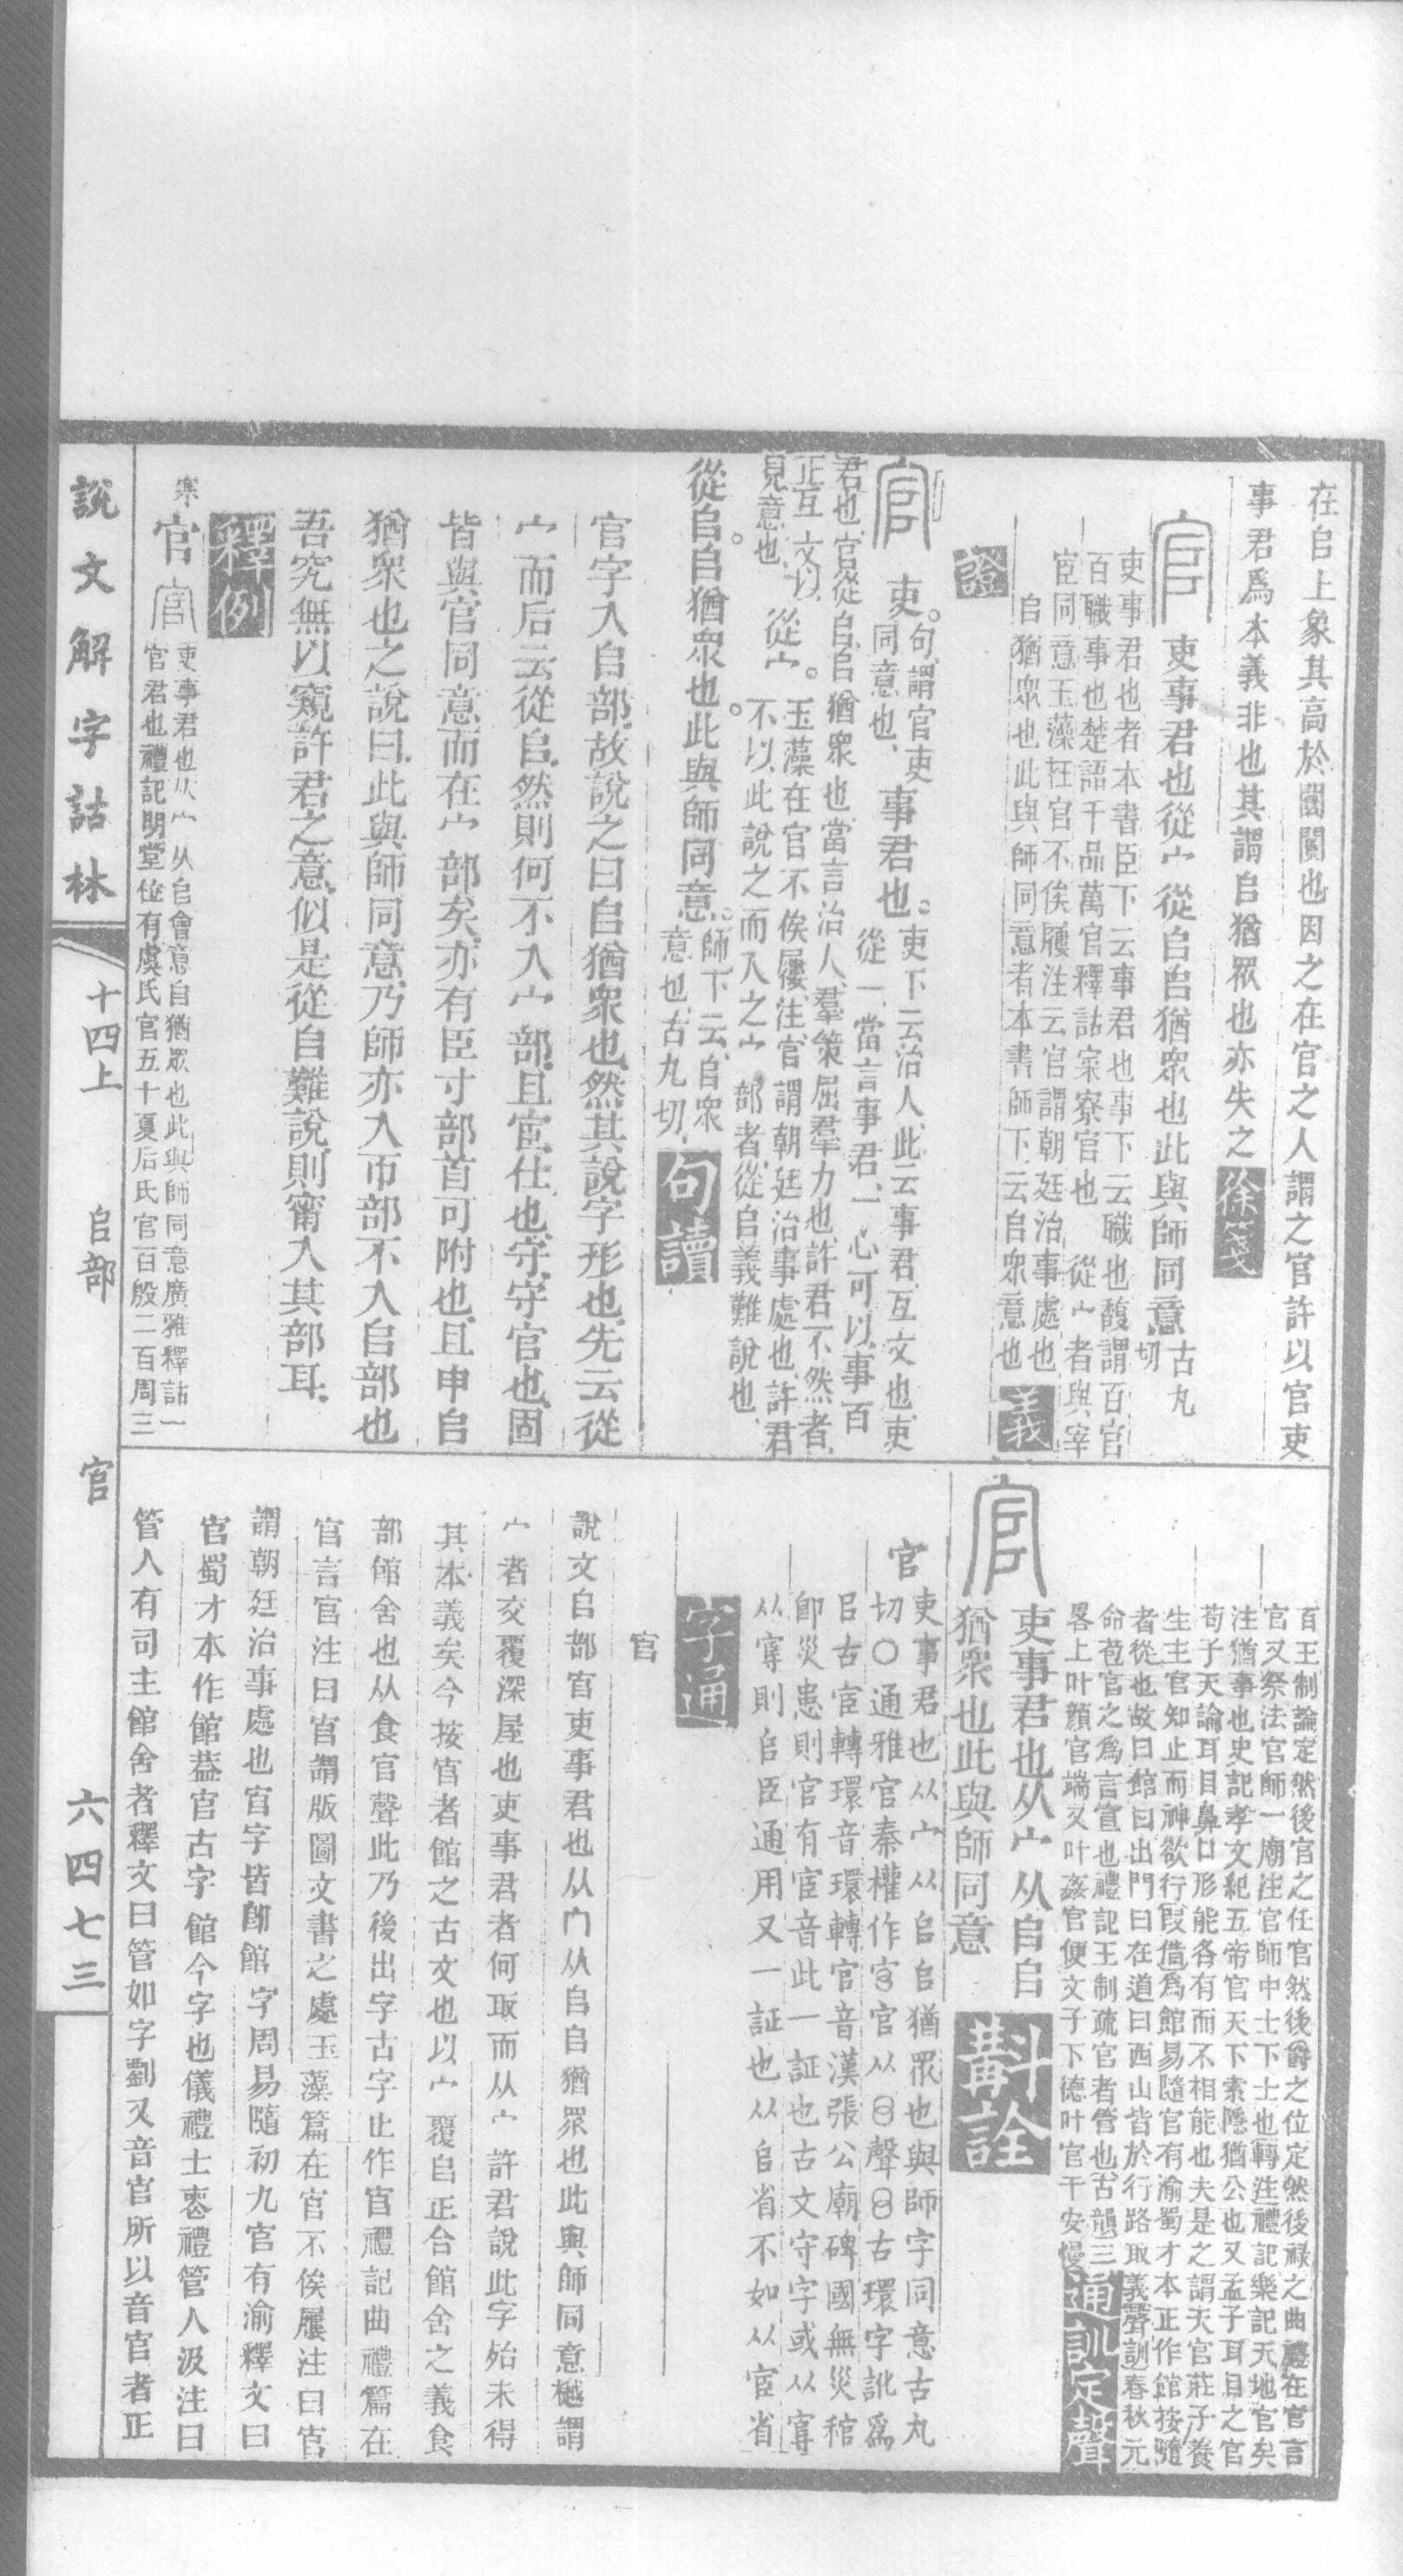 在𠂤上象其高於闤闠也因之在官之人謂之官許以官吏
事君爲本義非也其謂𠂤猶眾也亦失之 徐箋
官 吏事君也從宀從𠂤𠂤猶眾也此與師同意 古丸切
吏事君也者本書臣下云事君也事下云職也馥謂百官
百職事也楚語千品萬官釋詁寀寮官也 從宀者與宰
宦同意玉藻在官不俟屨注云官謂朝廷治事處也
𠂤猶眾也此與師同意者本書師下云𠂤眾意也 義
證
官 吏。句、謂官吏同意也、 事君也。吏下云治人、此云事君、互文也、吏
從一、當言事君、一心可以事百
君也、官從𠂤、𠂤猶眾也、當言治人、羣策屈羣力也、許君不然者、
正互文以見意也、 從宀。玉藻在官不俟屨、注、官謂朝廷治事處也、許君
不以此說之而入之宀部者、從𠂤義難說也、
從𠂤。𠂤猶眾也。此與師同意。師下云、𠂤眾意也、古丸切、 句讀
官字入𠂤部、故說之曰𠂤猶眾也、然其說字形也、先云從
宀而后云從𠂤、然則何不入宀部、且宦、仕也、守、守官也、固
皆與官同意、而在宀部矣、亦有臣寸部首可附也、且申𠂤
猶眾也之說曰、此與師同意、乃師亦入帀部、不入𠂤部也、
吾究無以窺許君之意、似是從𠂤難說、則甯入其部耳、
釋例
官 官 吏事君也从宀从𠂤會意𠂤猶眾也此與師同意廣雅釋詁一
官君也禮記明堂位有虞氏官五十夏后氏官百殷二百周三
百王制論定然後官之任官然後爵之位定然後祿之曲禮在官言
官又祭法官師一廟注官師中士下士也轉注禮記樂記天地官矣
注猶事也史記孝文紀五帝官天下索隱猶公也又孟子耳目之官
荀子天論耳目鼻口形能各有而不相能也夫是之謂天官莊子養
生主官知止而神欲行叚借爲館易隨官有渝蜀才本正作館按隨
者從也故曰館曰出門曰在道曰西山皆於行路取義聲訓春秋元
命苞官之爲言宣也禮記王制疏官者管也古韻三
畧上叶顔官端又叶姦官便文子下德叶官干安慢 通訓定聲
官 吏事君也从宀从𠂤𠂤
猶眾也此與師同意 斠詮
官 吏事君也从宀从𠂤𠂤猶眾也與師字同意古丸
切○通雅官秦權作官从聲古環字訛爲
㠯古宦轉環音環轉官音漢張公廟碑國無災
卽災患則官有宦音此一証也古文守字或从
从則𠂤臣通用又一証也从𠂤省不如从宦省
字通
官
說文𠂤部官吏事君也从宀从𠂤𠂤猶眾也此與師同意樾謂
宀者交覆深屋也吏事君者何取而从宀許君說此字殆未得
其本義矣今按官者館之古文也以宀覆𠂤正合館舍之義食
部館舍也从食官聲此乃後出字古字止作官禮記曲禮篇在
官言官注曰官謂版圖文書之處玉藻篇在官不俟屨注曰官
謂朝廷治事處也官字皆卽館字周易隨初九官有渝釋文曰
官蜀才本作館葢官古字館今字也儀禮士喪禮管人汲注曰
管人有司主館舍者釋文曰管如字劉又音官所以音官者正
說文解字詁林 十四上 𠂤部 官 六四七三